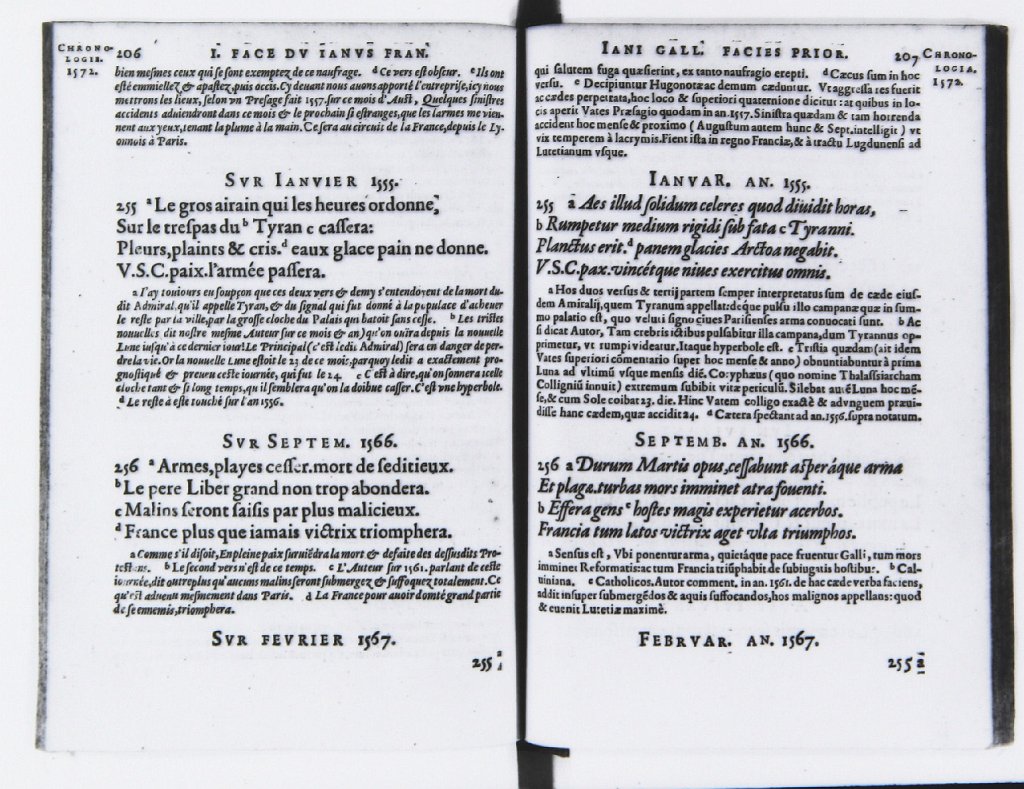 CHRONO-
LOGIE.
1572.
206 I. FACE DV IANVS FRAN.
bien mesmes ceux qui se sont exemptez de ce naufrage. d Ce vers est obscur. e Ils ont
esté emmiellez & apastez, puis occis. Cy deuant nous auons apporté l'entreprise, icy nous
mettrons les lieux, selon vn Presage fait 1557. sur ce mois d'Aust, Quelques sinistres
accidents aduiendront dans ce mois & le prochain si estranges, que les larmes me vien-
nent aux yeux, tenant la plume à la main. Ce sera au circuit de la France, depuis le Ly-
onnois à Paris.
SVR IANVIER 1555.
255 a Le gros airain qui les heures ordonne,
Sur le trespas du b Tyran c cassera:
Pleurs, plaints & cris. d eaux glace pain ne donne.
V.S.C. paix. l'armée passera.
a I'ay tousiours eu soupçon que ces deux vers & demy s'entendoyent de la mort du-
dit Admiral, qu'il appelle Tyran, & du signal qui fut donné à la populace d'acheuer
le reste par la ville, par la grosse cloche du Palais qui batoit sans cesse. b Les tristes
nouuelles dit nostre mesme Auteur sur ce mois & an) qu'on ouira depuis la nouuelle
Lune iusqu'à ce dernier iour! Le Principal (c'est ledit Admiral) sera en danger de per-
dre la vie. Or la nouuelle Lune estoit le 23 de ce mois, parquoy ledit a exactement pro-
gnostiqué & preueu ceste iournée, qui fut le 24. c C'est à dire, qu'on sonnera icelle
cloche tant & si long temps, qu'il semblera qu'on la doibue casser. C'est vne hyperbole.
d Le reste à esté touché sur l'an 1556.
SVR SEPTEM. 1566.
256 a Armes, playes cesser. mort de seditieux.
b Le pere Liber grand non trop abondera.
c Malins seront saisis par plus malicieux.
d France plus que iamais victrix triomphera.
a Comme s'il disoit, En pleine paix suruiẽdra la mort & defaite des dessusdits Pro-
testans. b Le second vers n'est de ce temps. c L'Auteur sur 1561. parlant de ceste
iournée, dit outre plus qu'aucuns malins seront submergez & suffoquez totalement. Ce
qu'est aduenu mesmement dans Paris. d La France pour auoir domté grand partie
de se ennemis, triomphera.
SVR FEVRIER 1567.
255 a
IANI GALL. FACIES PRIOR. 207
CHRONO-
LOGIA.
1572.
qui salutem fuga quæsierint, ex tanto naufragio erepti. d Cæcus sum in hoc
versu. e Decipiuntur Hugonotæ ac demum cæduntur. Vt aggressa res fuerit
ac cædes perpetrata, hoc loco & superiori quaternione dicitur: at quibus in lo-
cis aperit Vates Præsagio quodam in an. 1557. Sinistra quædam & tam horrenda
accident hoc mense & proximo (Augustum autem hunc & Sept. intelligit) vt
vix temperem à lacrymis. Fient ista in regno Franciæ, & à tractu Lugdunensi ad
Lutetianum vsque.
IANVAR. AN. 1555.
255 a Aes illud solidum celeres quod diuidit horas,
b Rumpetur medium rigidi sub fata c Tyranni.
Planctus erit. d panem glacies Arctoa negabit.
V.S.C. pax. vincétque niues exercitus omnis.
a Hos duos versus & tertij partem semper interpretatus sum de cæde eius-
dem Amiralij, quem Tyranum appellat: deque pulsu illo campanæ quæ in sum-
mo palatio est, quo velut signo ciues Parisienses arma conuocati sunt. b Ac
si dicat Autor, Tam crebris ictibus pulsabitur illa campana, dum Tyrannus op-
primetur, vt rumpi videatur. Itaque hyperbole est. c Tristia quædam (ait idem
Vates superiori cõmentario super hoc mense & anno) obnuntiabuntur à prima
Luna ad vltimũ vsque mensis diẽ. Coryphæus (quo nomine Thalassiarcham
Colligniũ innuit) extremum subibit vitæ periculũ. Silebat autẽ Luna hoc mẽ-
se, & cum Sole coibat 23. die. Hinc Vatem colligo exactè & advnguem præui-
disse hanc cædem, quæ accidit 24. d Cætera spectant ad an. 1556. supra notatum.
SEPTEMB. AN. 1566.
256 a Durum Martis opus, cessabunt asperáque arma
Et plaga. turbas mors imminet atra fouenti.
b Effera gens c hostes magis experietur acerbos.
Francia tum latos victrix aget vlta triumphos.
a Sensus est, Vbi ponentur arma, quietáque pace fruentur Galli, tum mors
imminet Reformatis: ac tum Francia triũphabit de subiugatis hostibus. b Cal-
uiniana. c Catholicos. Autor comment. in an. 1561. de hac cæde verba faciens,
addit insuper submergẽdos & aquis suffocandos, hos malignos appellans: quod
& euenit Lutetiæ maximè.
FEBRVAR. AN. 1567.
255 a